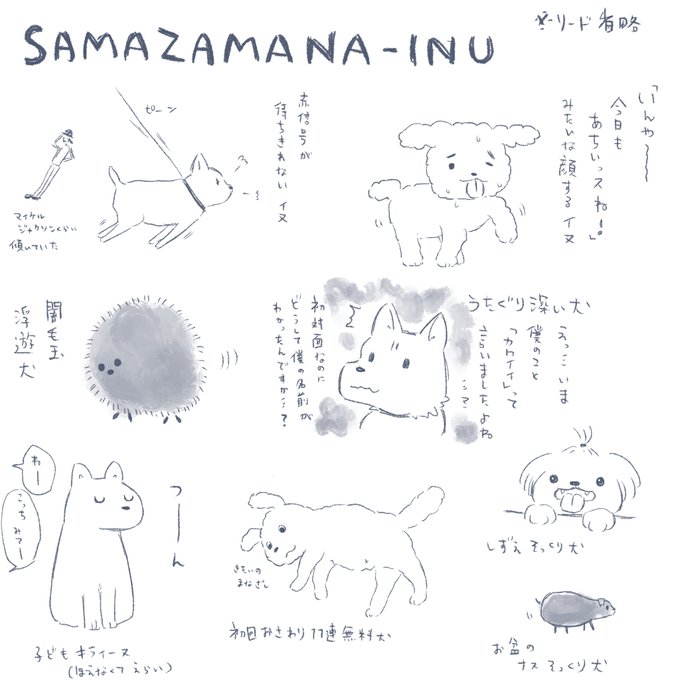 SAMAZAMANA-INU
※リード省略
「いんや〜〜
今日も
あちいっスね!」
みたいな顔するイヌ
赤信号が
待ちきれないイヌ
ピーン
マイケル
ジャクソンくらい
傾いていた
うたぐり深い犬
えっ…いま
僕のこと
「カワイイ」って
言いましたよね
…?
初対面なのに
どうして僕の名前が
わかったんですか…?
闇毛玉
浮遊犬
わー
こっちみてー
つーーん
子どもキライーヌ
(ほえなくてえらい)
きたいの
まなざし
初回おさわり11連無料犬
しずえそっくり犬
お盆の
ナスそっくり犬